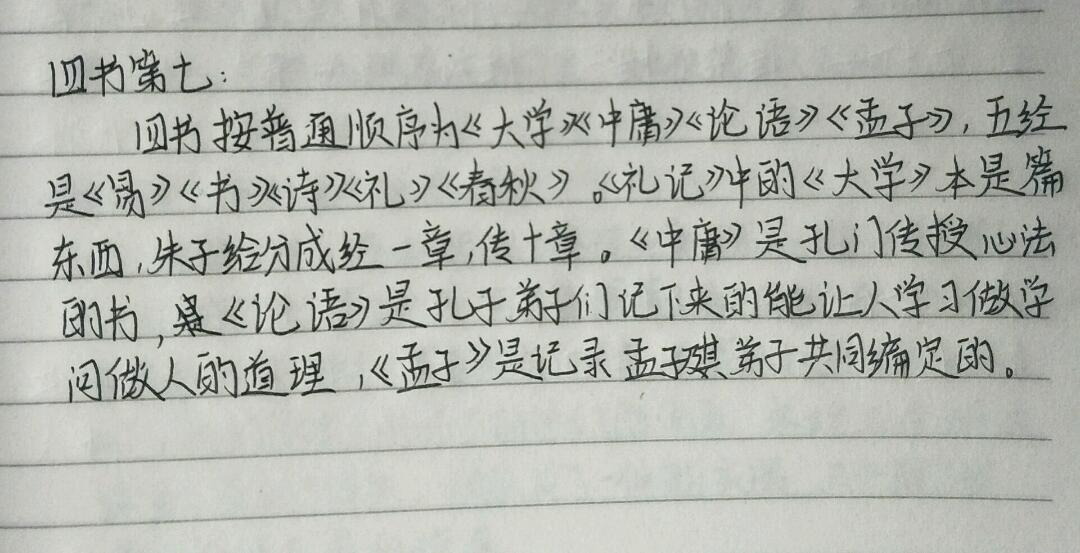 四书第七:
四书按普通顺序为《大学》《中庸》《论语》《孟子》,五经
是《易》《书》《诗》《礼》《春秋》。《礼记》中的《大学》本是篇
东西,朱子给分成经一章,传十章。《中庸》是孔门传授心法
的书,《论语》是孔子弟子们记下来的能让人学习做学
问做人的道理,《孟子》是记录孟子弟子共同编定的。